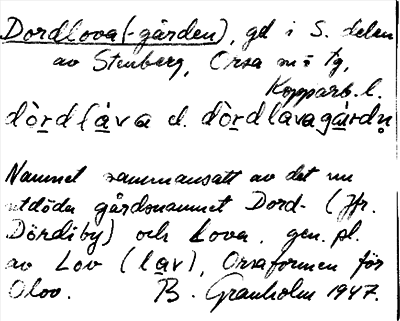 Dordlova(-gården), gd i S. delen
av Stenberg, Orsa sn o tg,
Kopparb. l.
dòrdláva el. dòrdlavagárdn̥
Namnet sammansatt av det nu
utdöda gårdsnamnet Dord- (Jfr.
Dördiby) och Lova, gen. pl.
av Lov (lav), Orsaformen för
Olov. B. Granholm 1947.